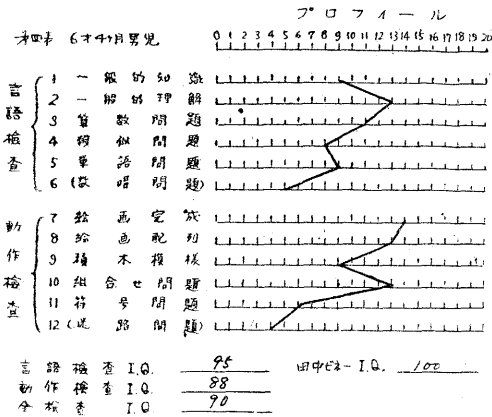 プロフィール
第四表 6才4ケ月男児
0 1 2 3 4 5 6 7 8 9 10 11 12 13 14 15 16 17 18 19 20
言語検査
1 一般的知識
2 一般的理解
3 算数問題
4 類似問題
5 単語問題
6 (数唱問題)
動作検査
7 絵画完成
8 絵画配列
9 積木模様
10 組合せ問題
11 符号問題
12 (迷路問題)
言語検査 I.Q. 95
動作検査 I.Q. 88
全検査 I.Q. 90
田中ビネー I.Q. 100